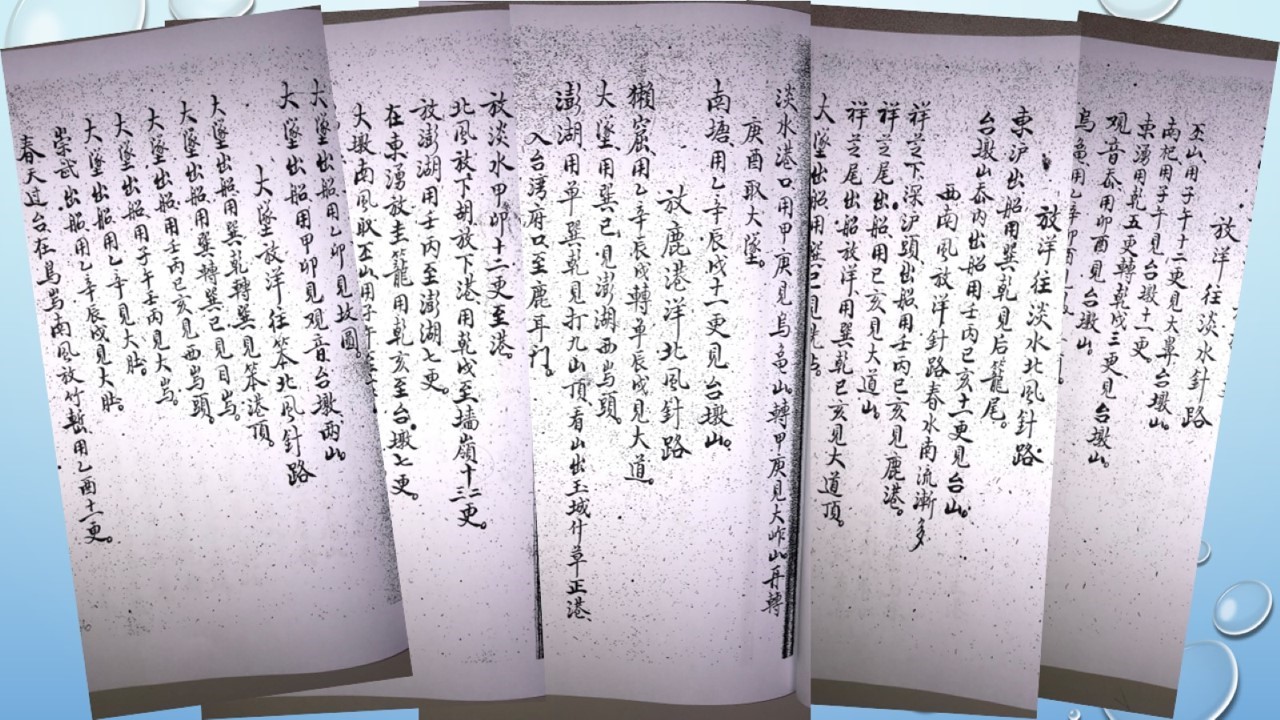 放洋往淡水針路
丕山用子午十二更見大鼻台墩山。
南杞用子午見台墩十一更
東湧用乾五更轉乾戌三更見台墩山。
观音泰用卯酉見台墩山。
烏龜用乙辛卯酉見
放洋往淡水北風針路
東沪出船用巽乾見后籠尾。
台墩山泰内出船用壬丙巳亥十一更見台山。
西南風放洋針路春水南流漸多
祥芝下深沪頭出船用壬丙巳亥見鹿港。
祥芝尾出船用巳亥見大道山。
祥芝尾出船放洋用巽乾巳亥見大道頂。
大墜出船用巽巳見
淡水港口用甲庚見烏龜山轉甲庚見大岞山再轉
庚酉取大墜。
南塘用乙辛辰戌十一更見台墩山。
放鹿港洋北風針路
獺窟用乙辛辰戌轉单辰戌見大道。
大墜用巽巳見澎湖西嶼頭。
澎湖用单巽乾見打九山頂看山出玉域什草正港
入台湾府口至鹿耳门。
放淡水甲卯十二更至港。
北風放下胡放下港用乾戌至墙嶺十二三更。
放澎湖用壬丙至澎湖七更。
在東湧放圭籠用乾亥至台墩七更。
大墩南風取丕山用子午
大墜出船用乙卯見故圓。
大墜出船用甲卯見观音台墩两山。
大墜放洋往笨北風針路
大墜出船用巽乾轉巽見笨港頂。
大墜出船用巽轉巽巳見目嶼。
大墜出船用壬丙巳亥見西嶼頭。
大墜出船用子午壬丙見大嶼。
大墜出船用乙辛見大肚。
崇武出船用乙辛辰戌見大肚。
春天过台在烏嶼南風放竹塹用乙酉十一更。